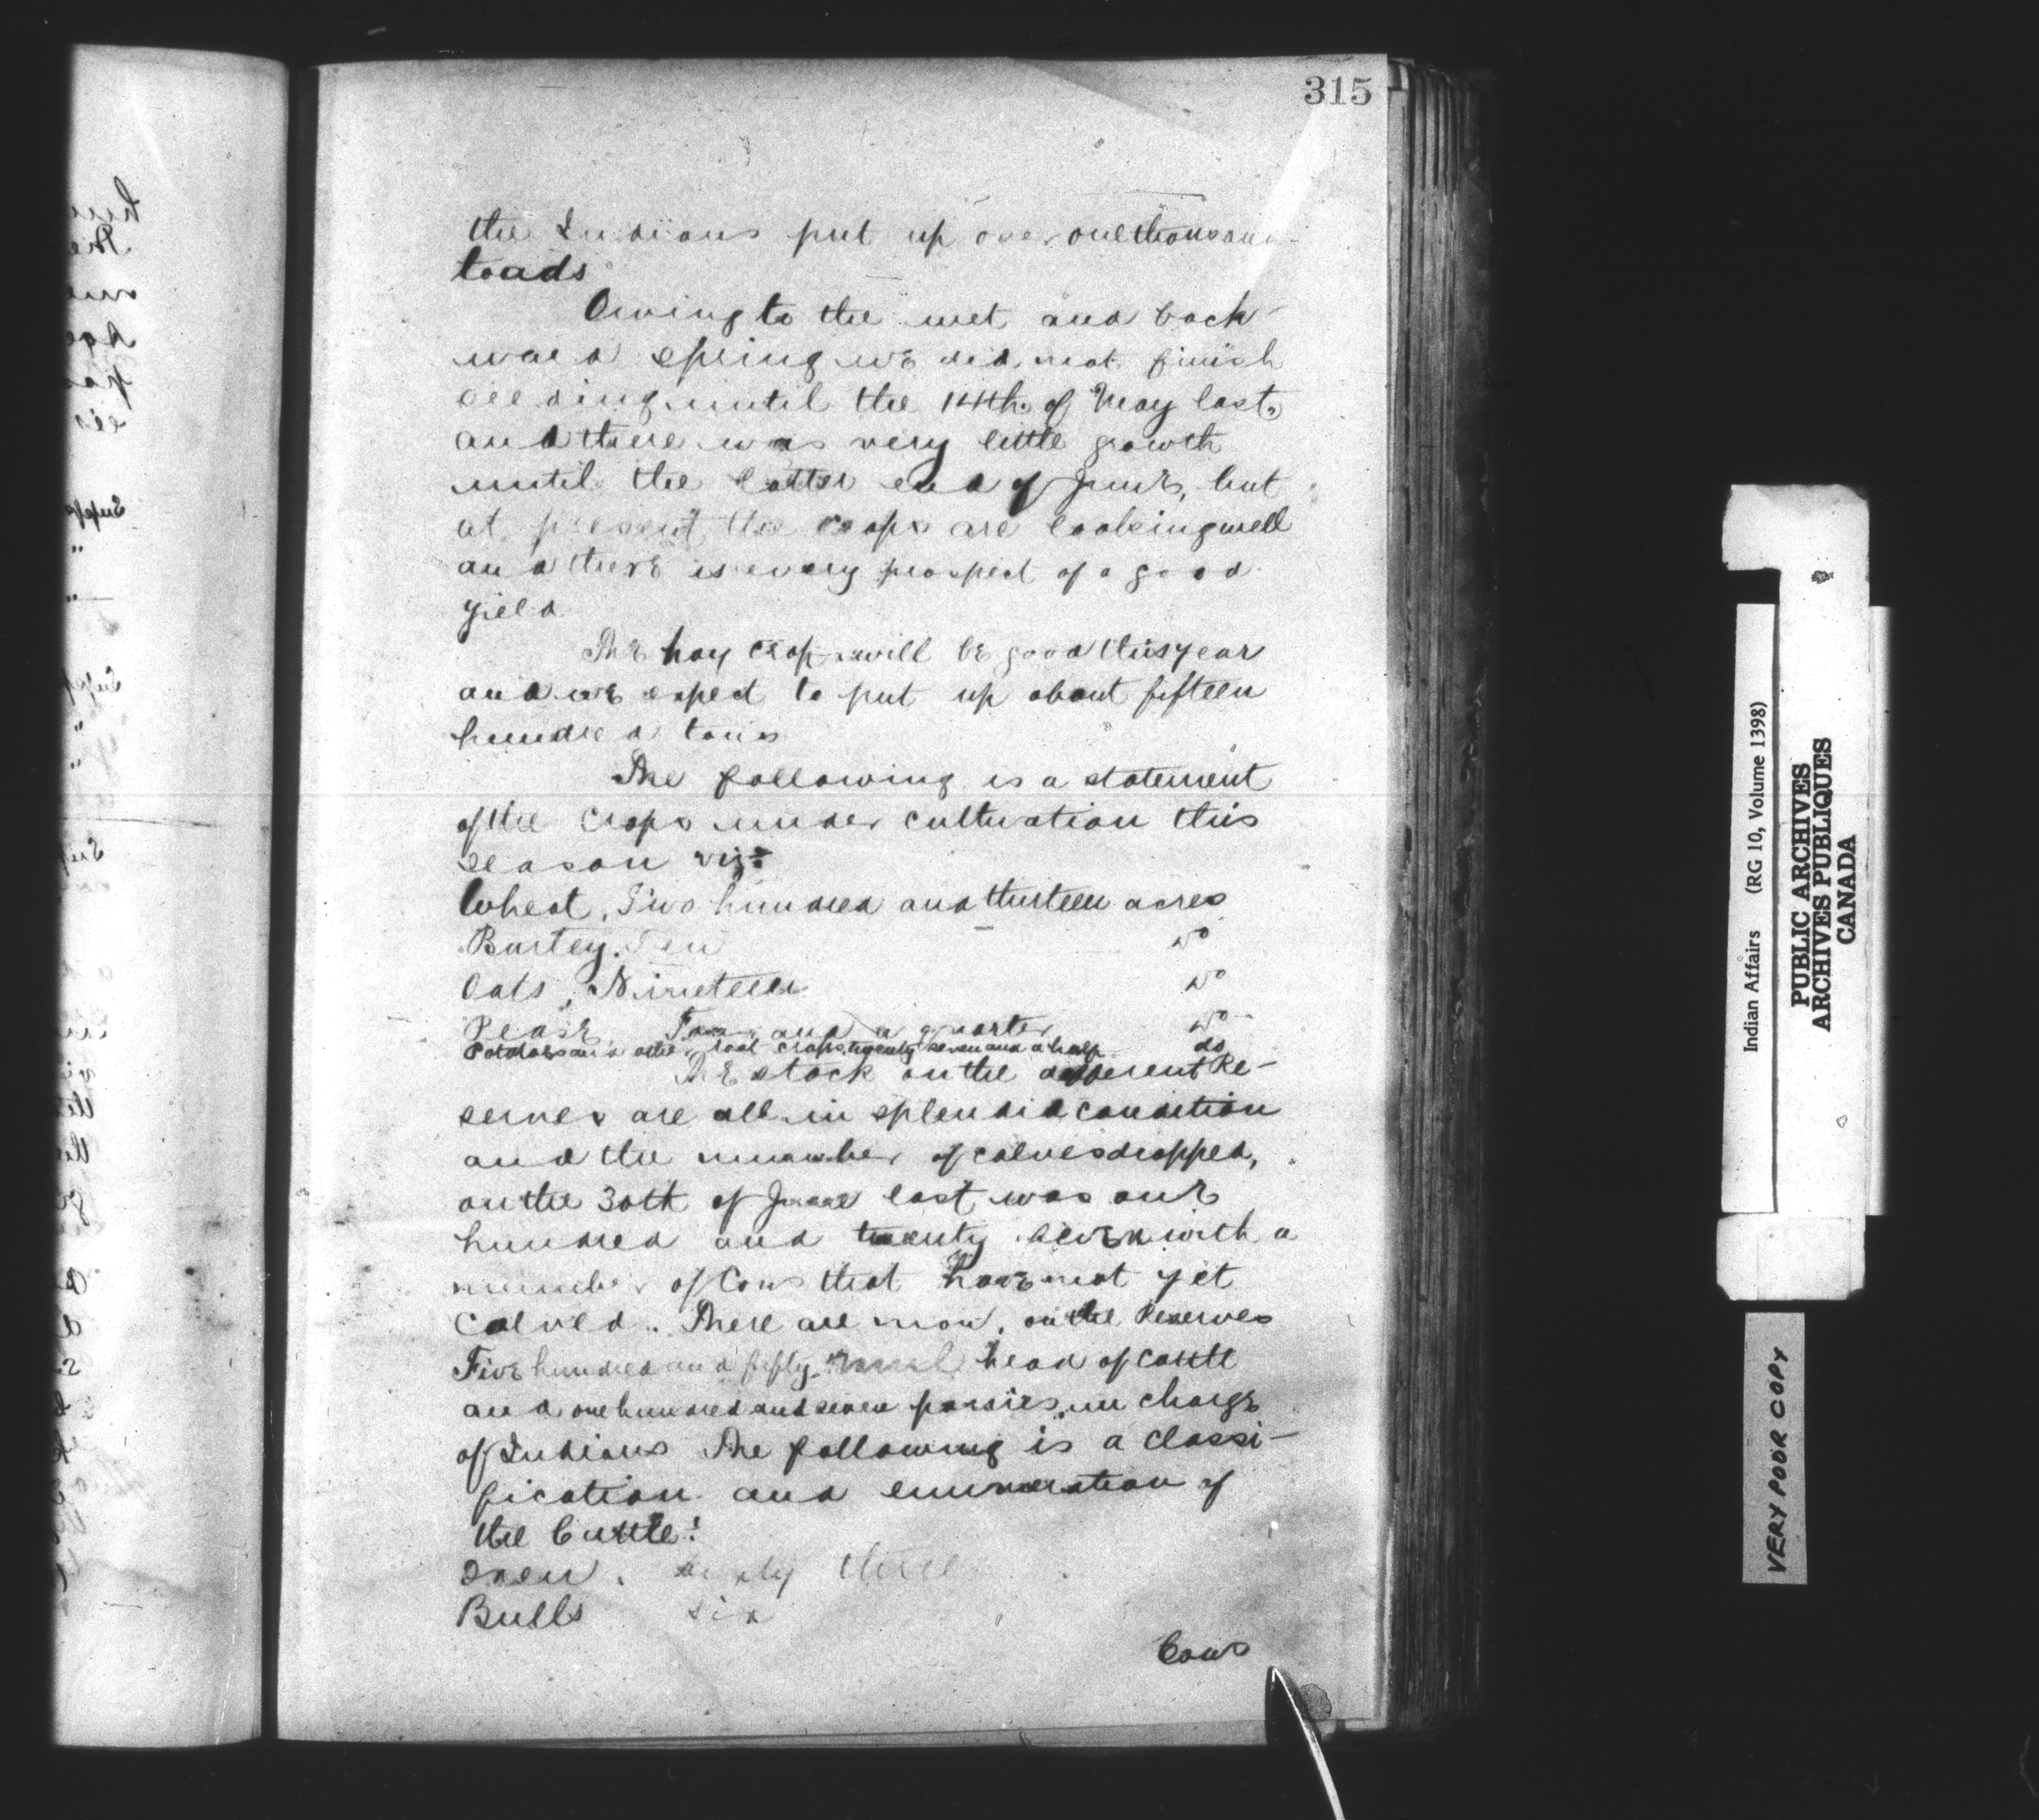 315
the Indians put up over one thousand
loads
Owing to the wet and back-
ward spring we did not finish
seeding until the 14th of May last,
and there was very little growth
until the latter end of June, but
at present the crops are looking well
and there is every prospect of a good
yield
The hay crop will be good this year
and we expect to put up about fifteen
hundred tons
The following is a statement
of the Crops under cultivation this
season viz:
Wheat, Two hundred and thirteen acres
Barley. Ten do
Oats, Nineteen do
Pease and a quarter do
Potatoes and other root crops, twenty seven and a half do
The stock on the different Re-
serves are all in splendid condition
and the number of calves dropped,
on the 30th of June last was one
hundred and twenty seven with a
number of Cows that have not yet
calved. There are now, on the Reserves
Five hundred and fifty head of cattle
and one hundred and seven ponies, in charge
of Indians The following is a classi-
fication and enumeration of
the Cattle:
Oxen. three
Bulls six
Cows
Indian Affairs (RG 10, Volume 1398)
PUBLIC ARCHIVES
ARCHIVES PUBLIQUES
CANADA
VERY POOR COPY